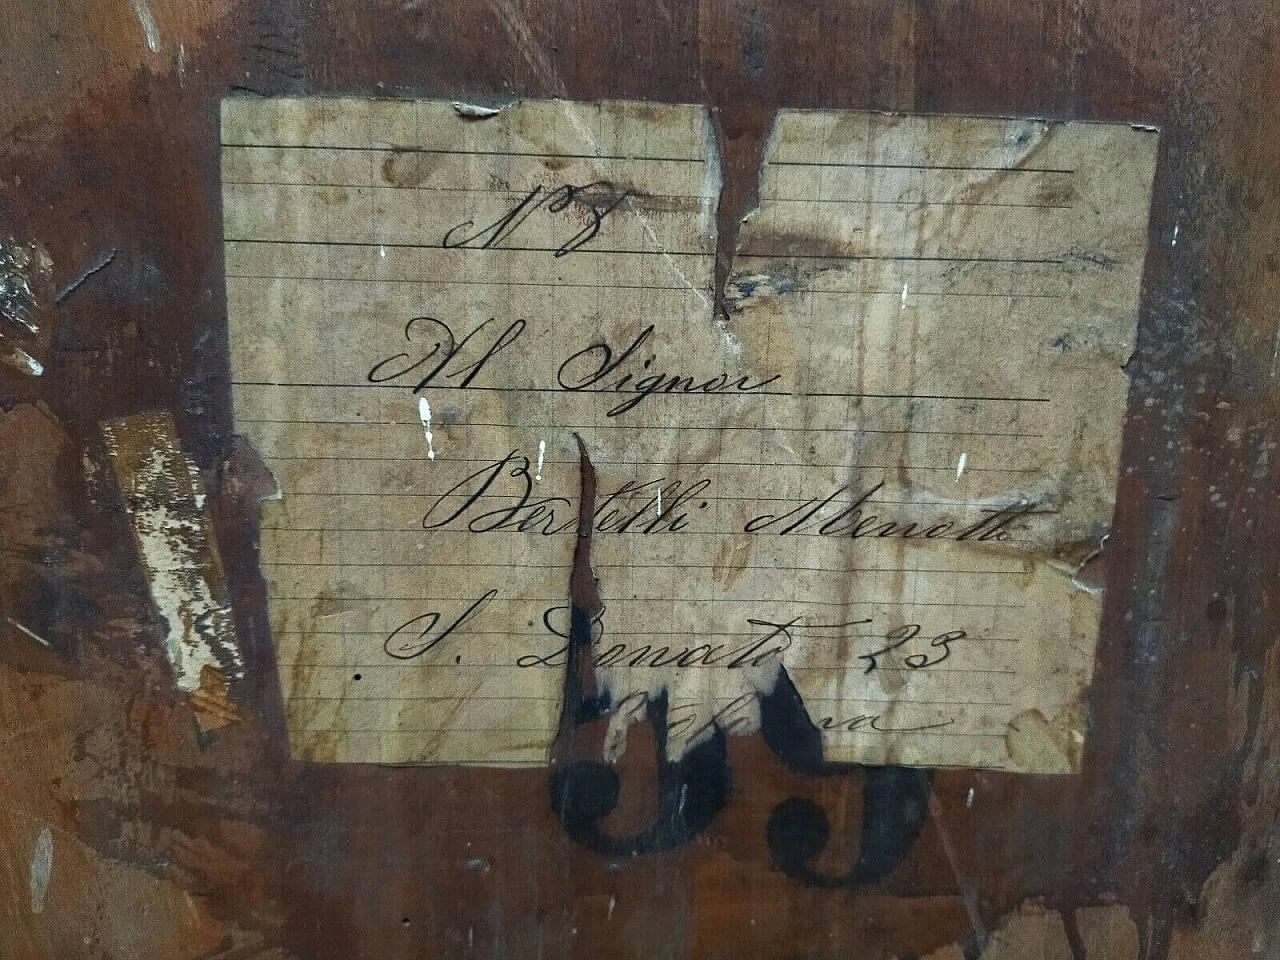 N° 8
Al Signor
Bertelli Menotti
S. Donato 23